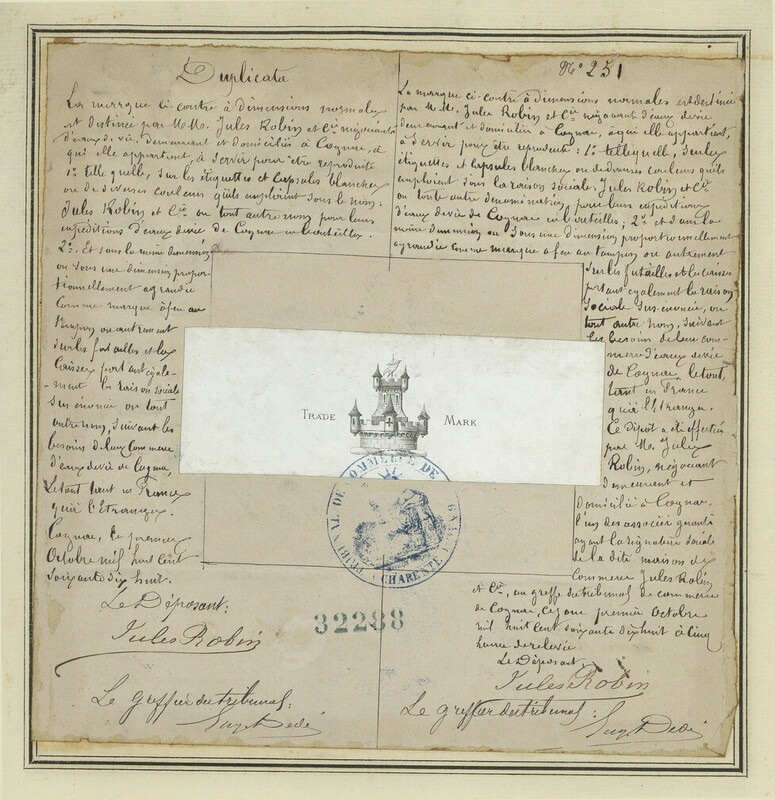 Duplicata
La marque ci-contre à dimensions normales
est destinée par M.M. Jules Robin et Cie négociants
d'eaux de vie, demeurant et domiciliés à Cognac, à
qui elle appartient, à servir pour être reproduite
1º telle quelle, sur les étiquettes et capsules blanches
ou de diverses couleurs qu'ils emploient sous le nom:
Jules Robin et Cie ou tout autre nom pour leurs
expéditions d'eaux de vie de Cognac en bouteilles.
2º Et sous la même dimension
ou sous une dimension propor
tionnellement agrandie
comme marque à feu au
tampon ou autrement
sur les futailles et les
caisses portant égale-
-ment la raison sociale
sus énoncée ou tout
autre nom, suivant les
besoins de leur commerce
d'eaux de vie de Cognac,
Le tout tant en France
qu'à l'Etranger.
Cognac, le premier
Octobre mil huit cent
soixante dix huit.
Le Déposant:
Jules Robin
Le greffier du tribunal:
Nº 251
La marque ci-contre à dimensions normales est destinée
par M.M. Jules Robin et Cie négociants d'eaux de vie
demeurant et domiciliés à Cognac, à qui elle appartient,
à servir pour être reproduite: 1º telle quelle, sur les
étiquettes et capsules blanches ou de diverses couleurs qu'ils
emploient sous la raison sociale: Jules Robin et Cie
ou toute autre dénomination pour leurs expéditions
d'eaux de vie de Cognac en bouteilles; 2º et dans la
même dimension ou sous une dimension proportionnellement
agrandie comme marque à feu au tampon ou autrement
sur les futailles et les caisses
portant également la raison
sociale sus-énoncée, ou
tout autre nom, suivant
les besoins de leur com-
merce d'eaux de vie
de Cognac, le tout,
tant en France
qu'à l'étranger.
Ce dépôt a été effectué
par M. Jules
Robin, négociant
demeurant et
domicilié à Cognac,
l'un des associés gérants
ayant la signature sociale
de la dite maison de
Commerce Jules Robin
et Cie, au greffe du tribunal de commerce
de Cognac, ce jour premier Octobre
mil huit cent soixante dix huit à cinq
heures de relevée
Le Déposant
Jules Robin
Le greffier du tribunal:
TRADE MARK
TRIBUNAL DE COMMERCE DE
(CHARENTE)
32288